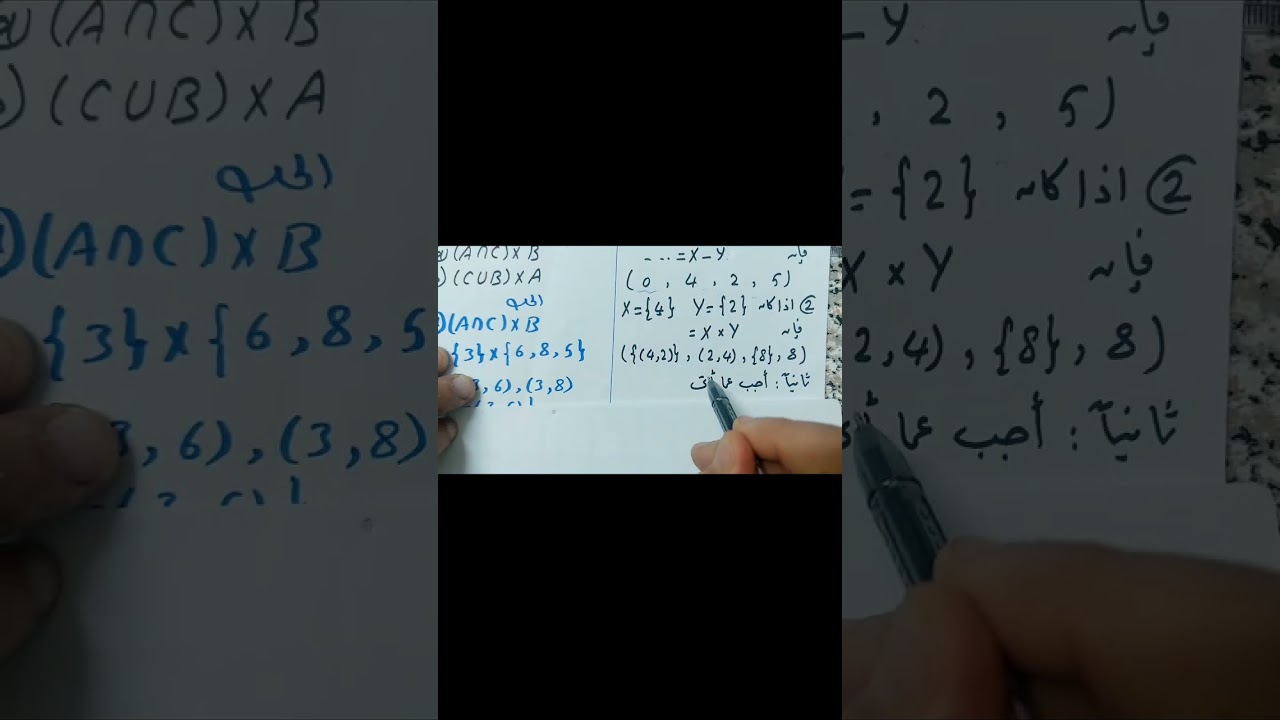 … = X - Y فإن
( 0 , 4 , 2 , 5 )
② اذا كان Y = {2} X = {4}
فإن X × Y =
( {(4,2)} , (2,4) , {8} , 8 )
ثانياً : أجب عما
(A∩C) × B
(C∪B) × A
الحل
(A∩C) × B
{3} × {6 , 8 , 5}
, 6) , (3 , 8)